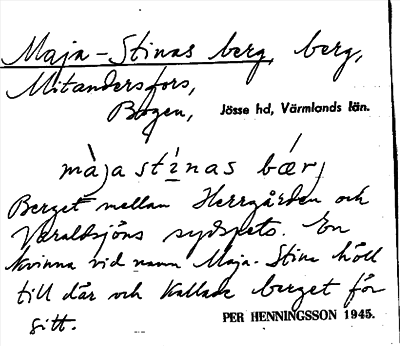 Maja-Stinas berg, berg,
Mitandersfors,
Bogen, Jösse hd, Värmlands län.
màja stí̱nas bær̀j
Berget mellan Herrgården och
Varaldsjöns sydspets. En
kvinna vid namn Maja-Stina höll
till där och kallade berget för
sitt.
PER HENNINGSSON 1945.